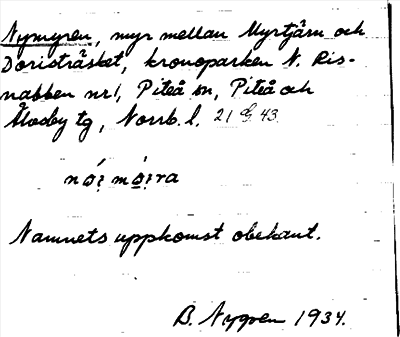 Nymyren, myr mellan Myrtjärn och
Doristräsket, kronoparken N. Ris-
nabben nr 1, Piteå sn, Piteå och
Älvsby tg, Norrb. l. 21 G 43
Namnets uppkomst obekant.
B. Nygren 1934.